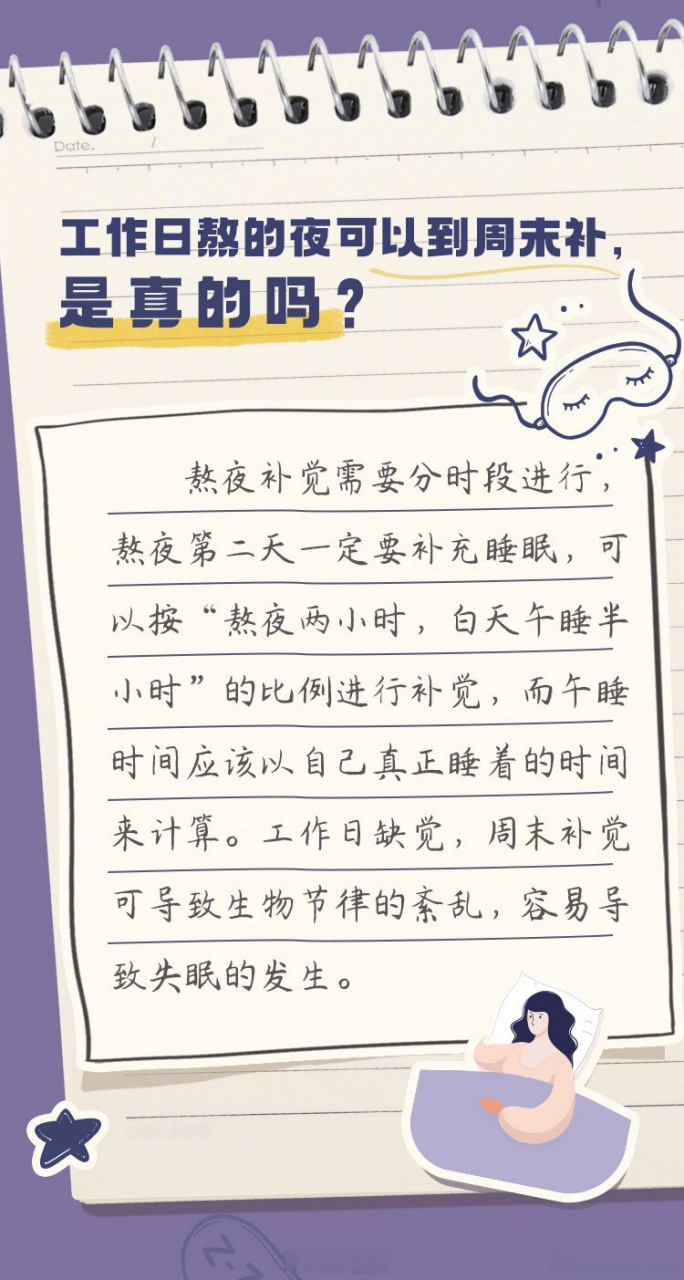 Date. /
工作日熬的夜可以到周末补，
是真的吗？
熬夜补觉需要分时段进行，
熬夜第二天一定要补充睡眠，可
以按“熬夜两小时，白天午睡半
小时”的比例进行补觉，而午睡
时间应该以自己真正睡着的时间
来计算。工作日缺觉，周末补觉
可导致生物节律的紊乱，容易导
致失眠的发生。